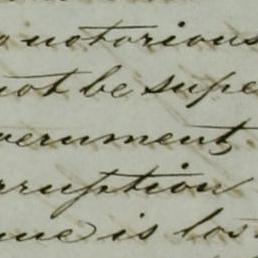 notorious
not be supe
vernment.
rruption
ue is los